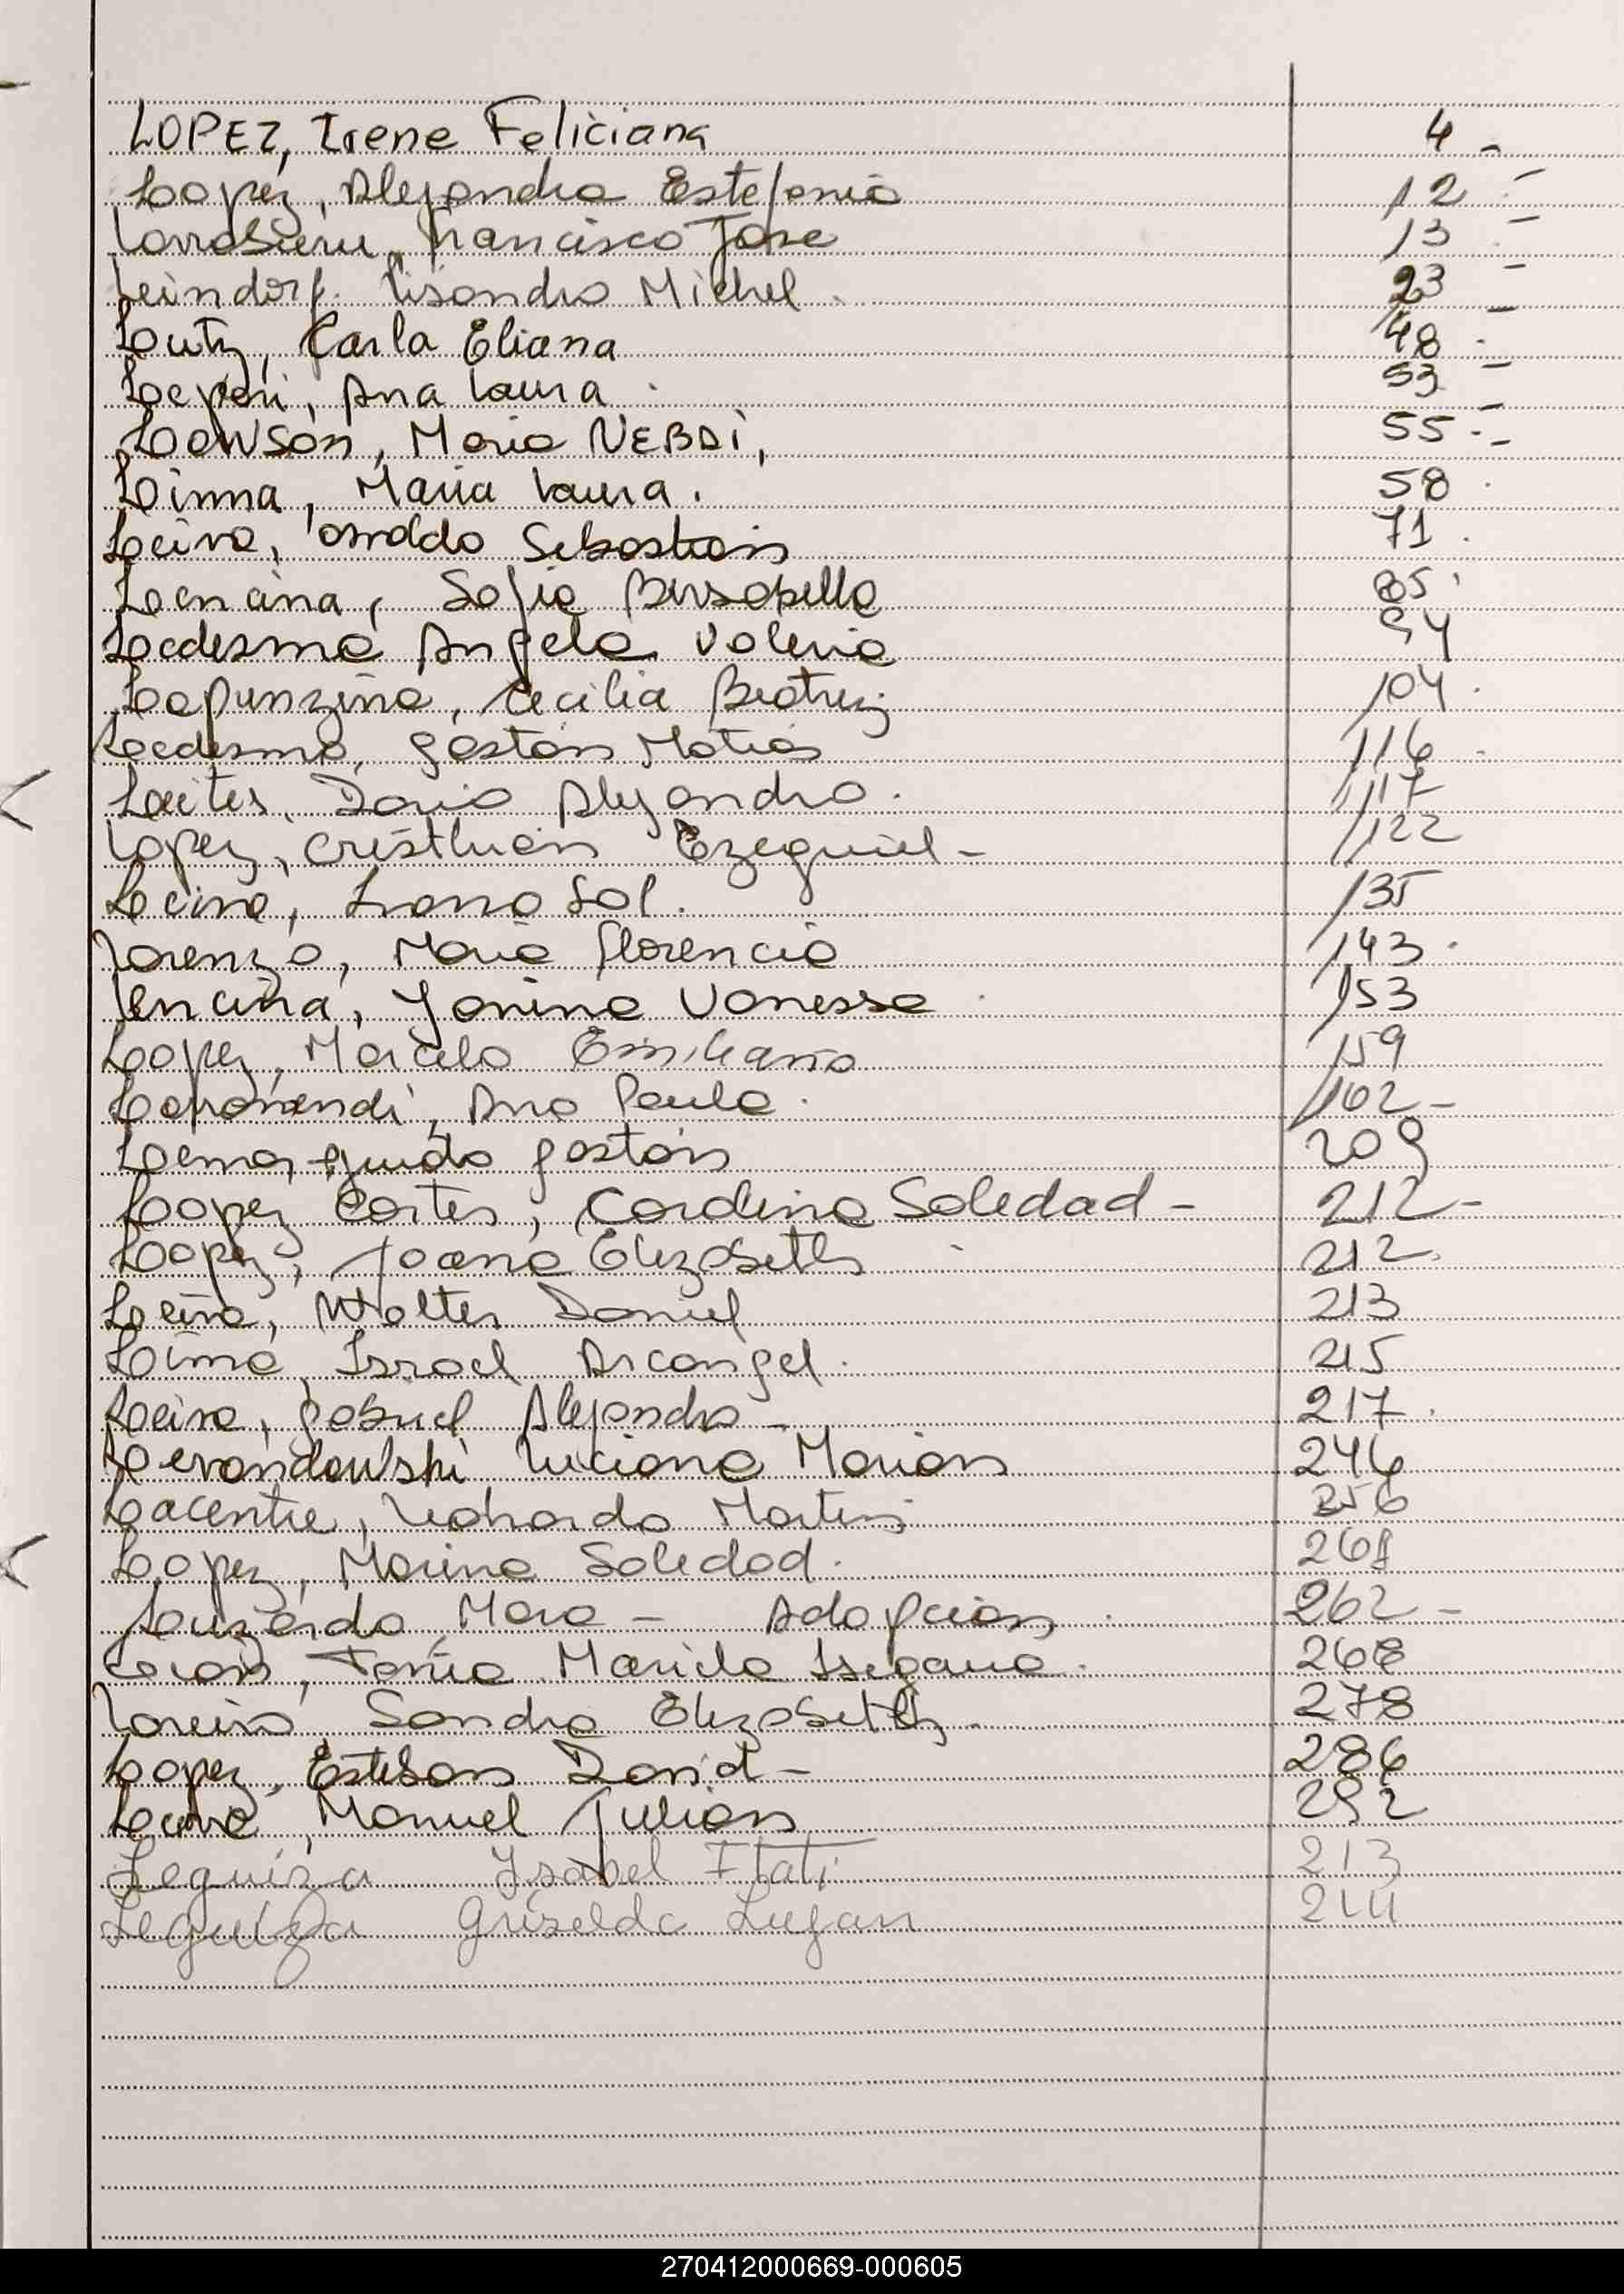 LOPEZ, Irene Feliciana 4 -
Lopez, Alejandra Estefania 12 -
Francisco Jose 13 -
Leindorf. Lisandro Michel. 23 -
Lutz, Carla Eliana 48 -
Ana Laura 53 -
Lawson, Maria NEBAI, 55 -
Linna, Maria Laura. 58
Leiva, Osvaldo Sebastian 71.
Lencina, Sofia 85
Ledesma Angela Valeria 94
Lapunzina, Cecilia Beatriz 104.
Ledesma, Gaston Matias 116
Leites, Dario Alejandro. 117
Lopez, Cristhian Ezequiel - 122
Leiva, Sol. 135
Lorenzo, Maria Florencia 143.
Lencina, Yanina Vanessa 153
Lopez, Marcelo Emiliano 159
Ana Paula. 162 -
Lema, Guido Gaston 209
Lopez Cortes, Carolina Soledad - 212 -
Lopez, Joana Elizabeth 212.
Leiva, Walter Daniel 213
Lima, Israel Arcangel. 215
Leiva, Gabriel Alejandro - 217.
Levandowski Luciana Marian 246
Lacentre, Leonardo Martin 256
Lopez, Marina Soledad. 261
Mara - Adopcion 262 -
Tania Mariela 268
Sandra Elizabeth. 278
Lopez, Esteban David - 286
Leiva, Manuel Julian 292
Leguiza Isabel Itati 213
Leguiza Griselda Lujan 244
270412000669-000605